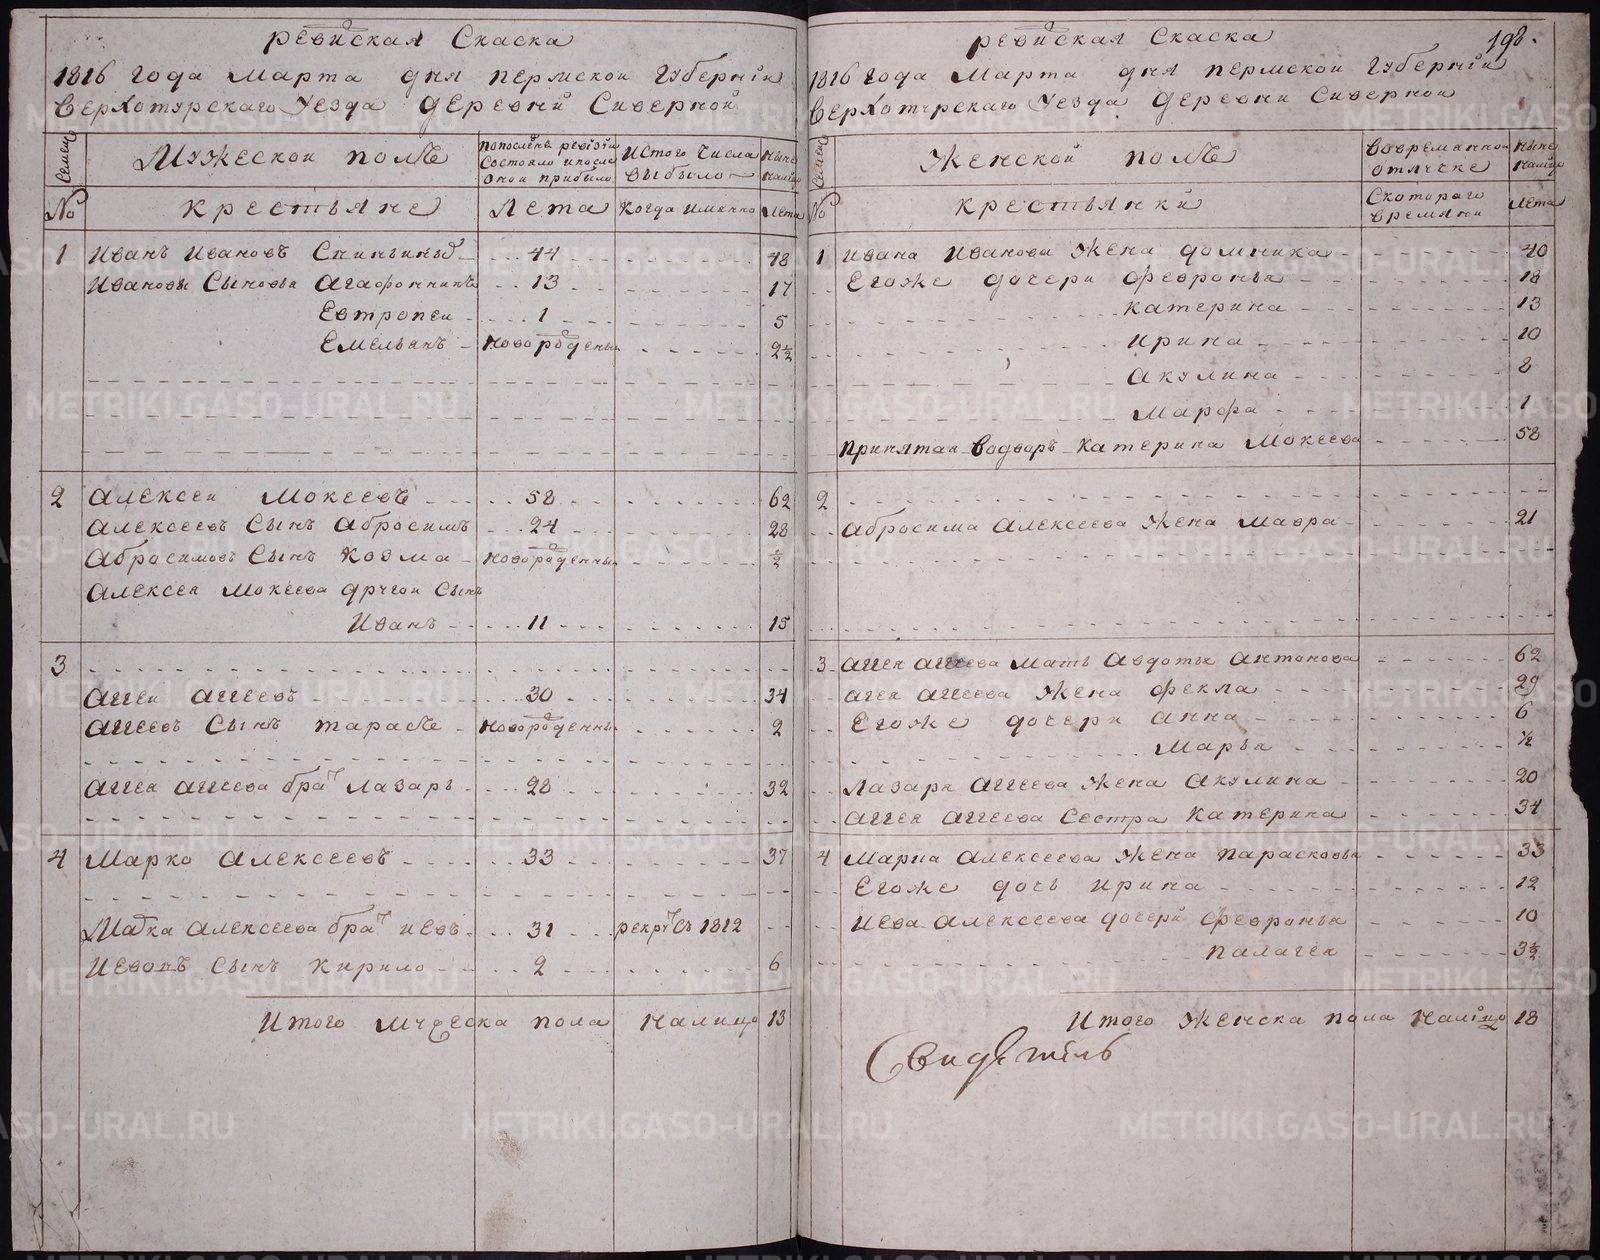 ревизская Сказка
1816 года Марта дня пермской Губернии
Верхотурскаго Уезда деревни Сиверной
Семей
Мужеской полъ
попоследн ревизіи
состояло и после
оной прибыло
Истого числа
выбыло
ныне
налицо
№
крестьяне
Лета
когда именно
лета
1 Иванъ Ивановъ 44 48
Ивановы Сыновья Агафонникъ 13 17
Евтропеи 1 5
Емельянъ новорожденыи 2½
2 Алексеи Мокеевъ 58 62
Алексеевъ Сынъ Абросимъ 24 28
Абросимовъ Сынъ Козма новорожденныи ½
Алексея Мокеева другои Сынъ
Иванъ 11 15
3
Аггеи Аггеевъ 30 34
Аггеевъ Сынъ Тарасъ новорожденны 2
Аггея Аггеева братъ Лазарь 28 32
4 Марко Алексеевъ 33 37
Марка Алексеева братъ Иевъ 31 рекрутъ съ 1812
Иевовъ Сынъ Кирило 2 6
Итого мужеска пола налицо 13
198.
ревизская Сказка
1816 года Марта дня пермской Губернии
Верхотурскаго Уезда деревни Сиверной
Семей
Женской полъ
вовременной
отлучке
ныне
налицо
№
крестьянки
Скотораго
времяни
лета
1 Ивана Иванова жена домника 40
Егоже дочери Февронья 18
Катерина 13
Ирина 10
Акулина 8
Марфа 1
принятая водворъ Катерина Мокеева 58
2
Абросима Алексеева жена Мавра 21
3 Аггея Аггеева мать Авдотья Антонова 62
Аггея Аггеева жена Фекла 29
Егоже дочери Анна 6
Марья ½
Лазаря Аггеева жена Акулина 20
Аггея Аггеева Сестра Катерина 34
4 Марка Алексеева жена Парасковья 33
Егоже дочь Ирина 12
Иева Алексеева дочери Февронья 10
Палагея 3½
Итого женска пола налицо 18
Свидетель
METRIKI.GASO-URAL.RU